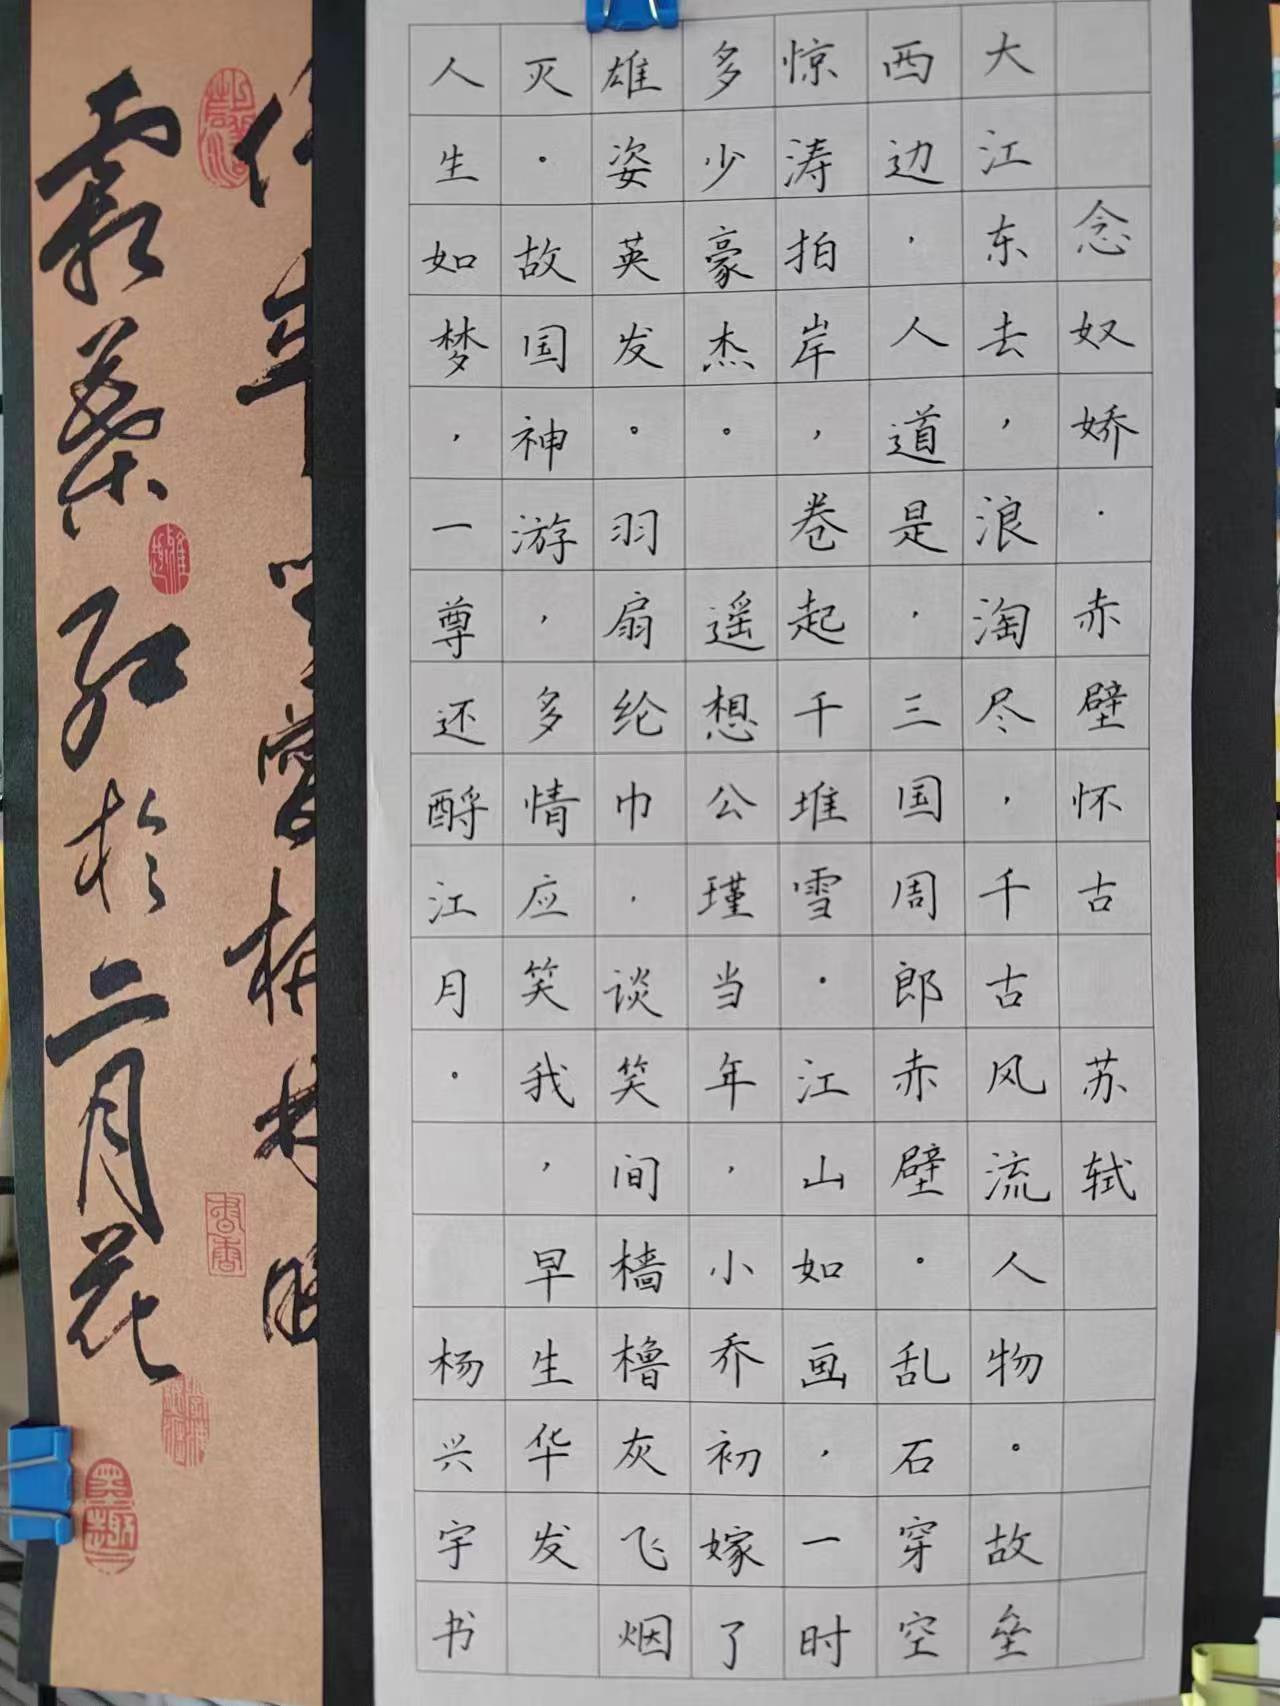 念奴娇·赤壁怀古 苏轼
大江东去，浪淘尽，千古风流人物。故垒
西边，人道是，三国周郎赤壁。乱石穿空
惊涛拍岸，卷起千堆雪。江山如画，一时
多少豪杰。 遥想公瑾当年，小乔初嫁了
雄姿英发。羽扇纶巾，谈笑间樯橹灰飞烟
灭。故国神游，多情应笑我，早生华发
人生如梦，一尊还酹江月。 杨兴宇书
霜葉紅於二月花
書香
墨趣